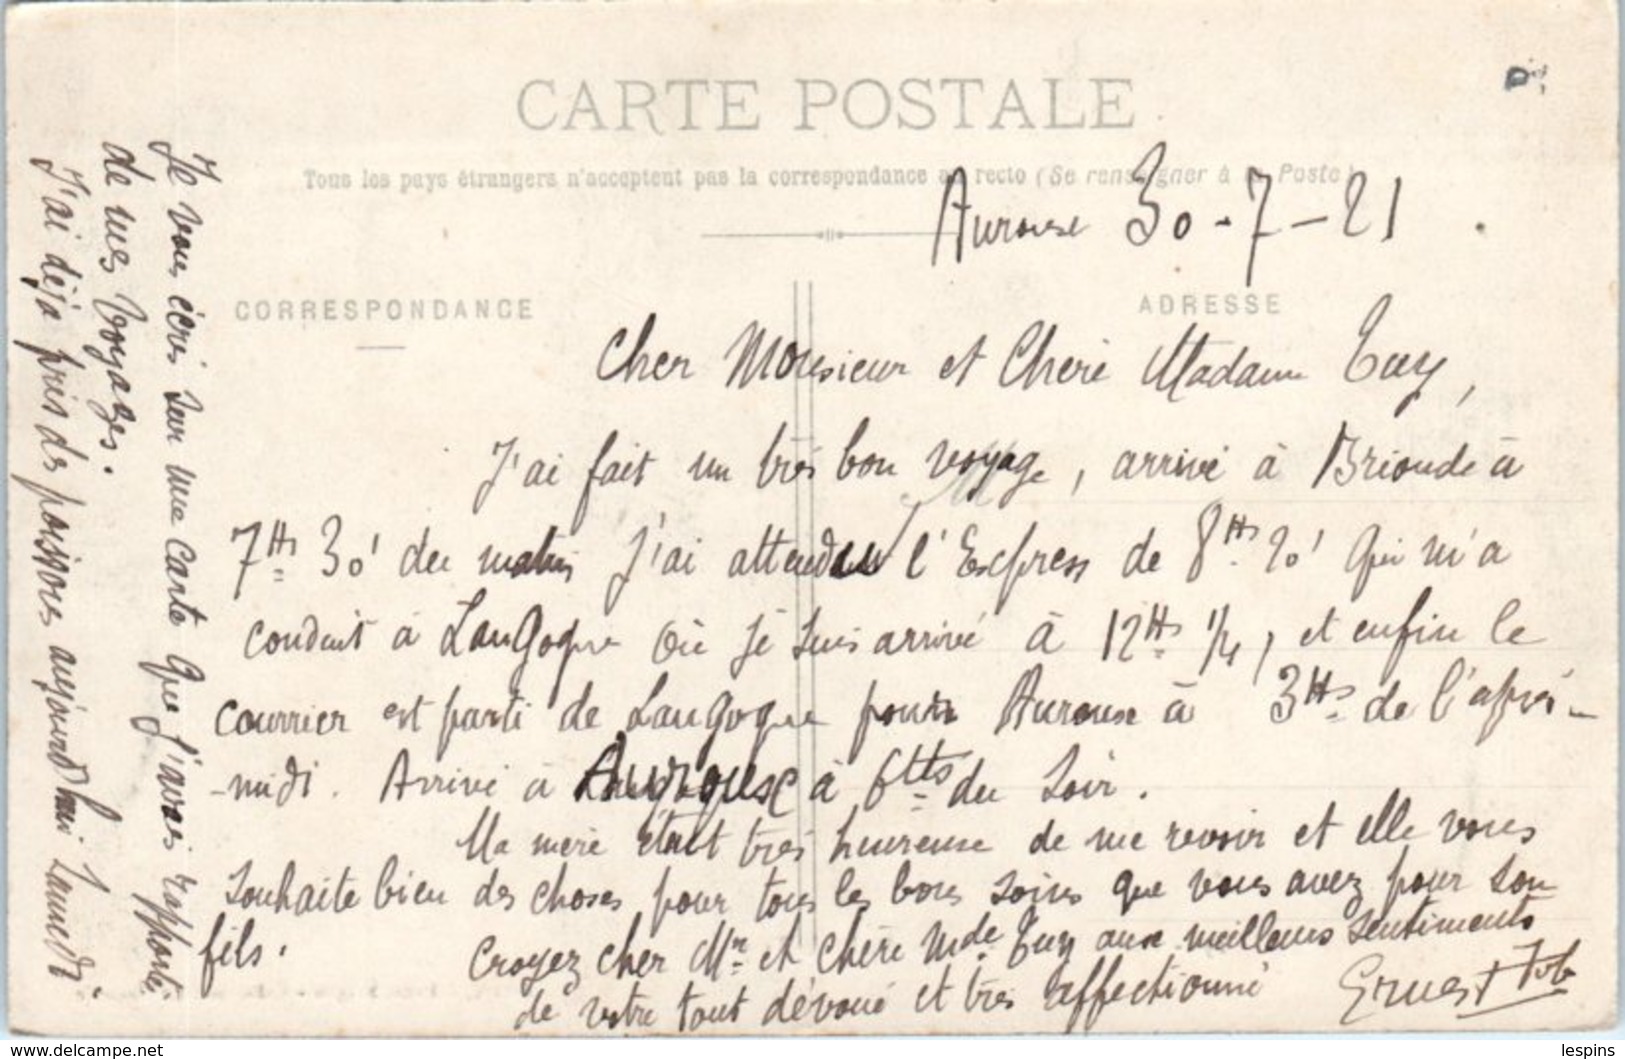 CARTE POSTALE
Tous les pays étrangers n'acceptent pas la correspondance au recto (Se renseigner à la Poste)
Auroux 30-7-21
CORRESPONDANCE
ADRESSE
Cher Monsieur et Chère Madame
J'ai fait un très bon voyage, arrivé à Brioude à
7Hs 30' du matin J'ai attendu l'Express de 8Hs 20' qui m'a
conduit à Langogne où je suis arrivé à 12Hs 1/4, et enfin le
courrier est parti de Langogne pour Auroux à 3Hs de l'après-
-midi. Arrivé à à 6Hs du soir.
Ma mère était très heureuse de me revoir et elle vous
souhaite bien des choses pour tous les bons soins que vous avez pour son
fils.
Croyez cher Mr et chère Mde aux meilleurs sentiments
de votre tout dévoué et très affectionné
Ernest
Je vous écris sur une carte que j'avais rapporté
de mes voyages.
J'ai déjà pris des poissons aujourd'hui samedi.
lespins
https://www.delcampe.net